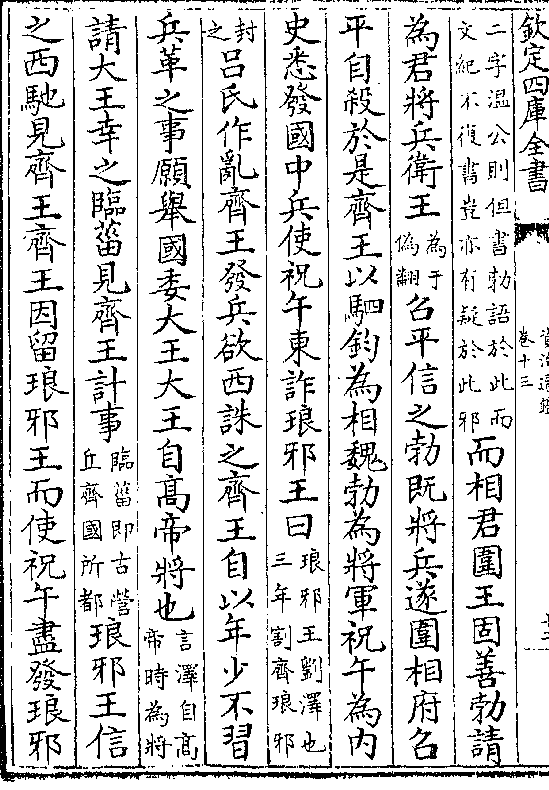 欽定四庫全書
資治通鑑
卷十三
二字溫公則但書勃語於此而
文紀不復書豈亦有疑於此邪
而相君圍王固善勃請
為君將兵衛王
為于
偽翻
召平信之勃既將兵遂圍相府召
平自殺於是齊王以駟鈞為相魏勃為將軍祝午為內
史悉發國中兵使祝午東詐琅邪王曰
琅邪王劉澤也
三年割齊琅邪
封
之
呂氏作亂齊王發兵欲西誅之齊王自以年少不習
兵革之事願舉國委大王大王自髙帝將也
言澤自髙
帝時為將
請大王幸之臨菑見齊王計事
臨菑即古營
丘齊國所都
琅邪王信
之西馳見齊王齊王因留琅邪王而使祝午盡發琅邪